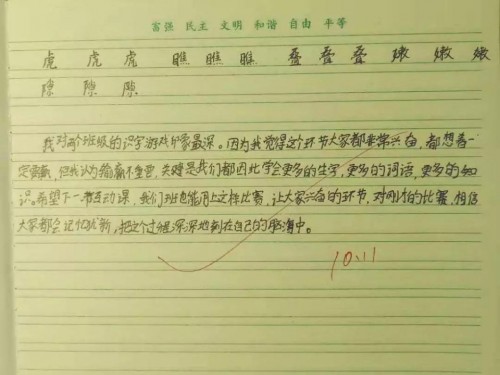 富强 民主 文明 和谐 自由 平等
虎 虎 虎 瞧 瞧 瞧 叠 叠 叠 嫩 嫩 嫩
隙 隙 隙
我对两个班级的识字游戏印象最深。因为我觉得这个环节大家都非常兴奋,都想着一
定要赢,但我认为输赢不重要,关键是我们都因此学会更多的生字,更多的词语,更多的知
识。希望下一节互动课,我们班也能用上这样比赛,让大家兴奋的环节,对刚才的比赛,相信
大家都会记忆犹新,把这个过程深深地刻在自己的脑海中。
10.11